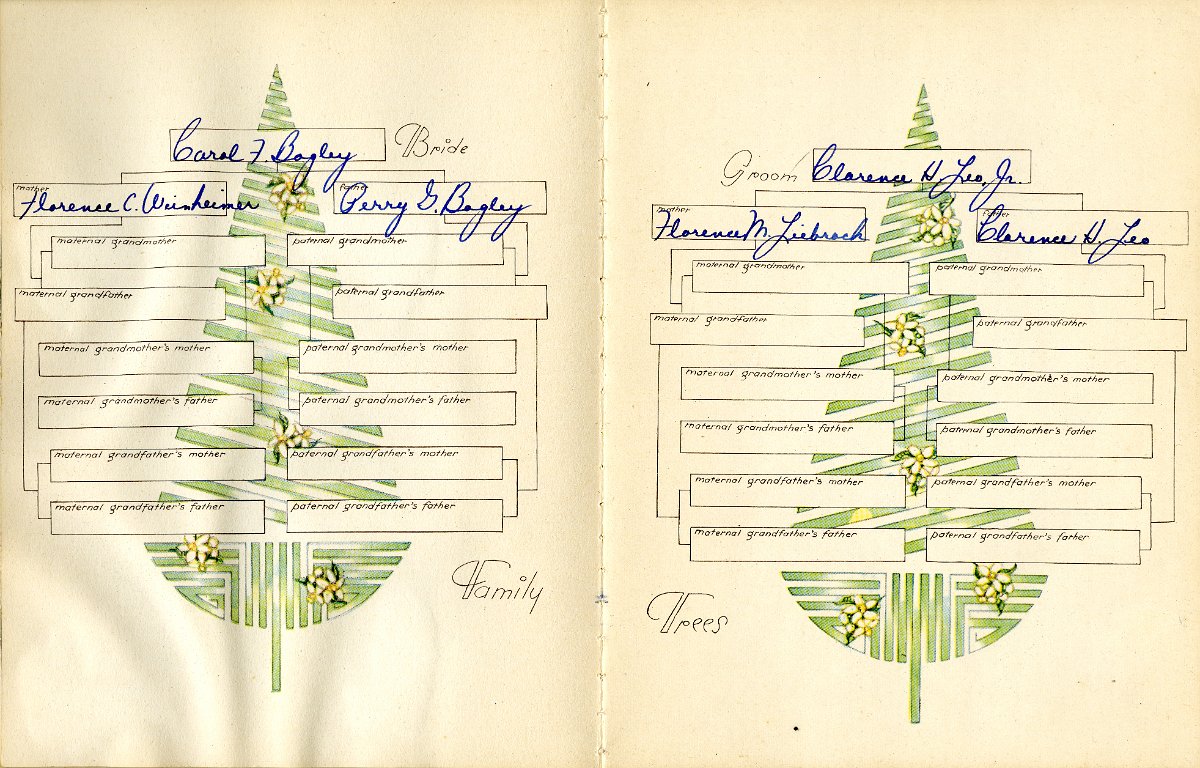 Carol F. Bagley Bride
mother Florence C. Weinheimer
father Perry G. Bagley
maternal grandmother
paternal grandmother
maternal grandfather
paternal grandfather
maternal grandmother's mother
paternal grandmother's mother
maternal grandmother's father
paternal grandmother's father
maternal grandfather's mother
paternal grandfather's mother
maternal grandfather's father
paternal grandfather's father
Family
Groom Clarence H. Leo, Jr.
mother Florence M. Liebrock
father Clarence H. Leo
maternal grandmother
paternal grandmother
maternal grandfather
paternal grandfather
maternal grandmother's mother
paternal grandmother's mother
maternal grandmother's father
paternal grandmother's father
maternal grandfather's mother
paternal grandfather's mother
maternal grandfather's father
paternal grandfather's father
Trees